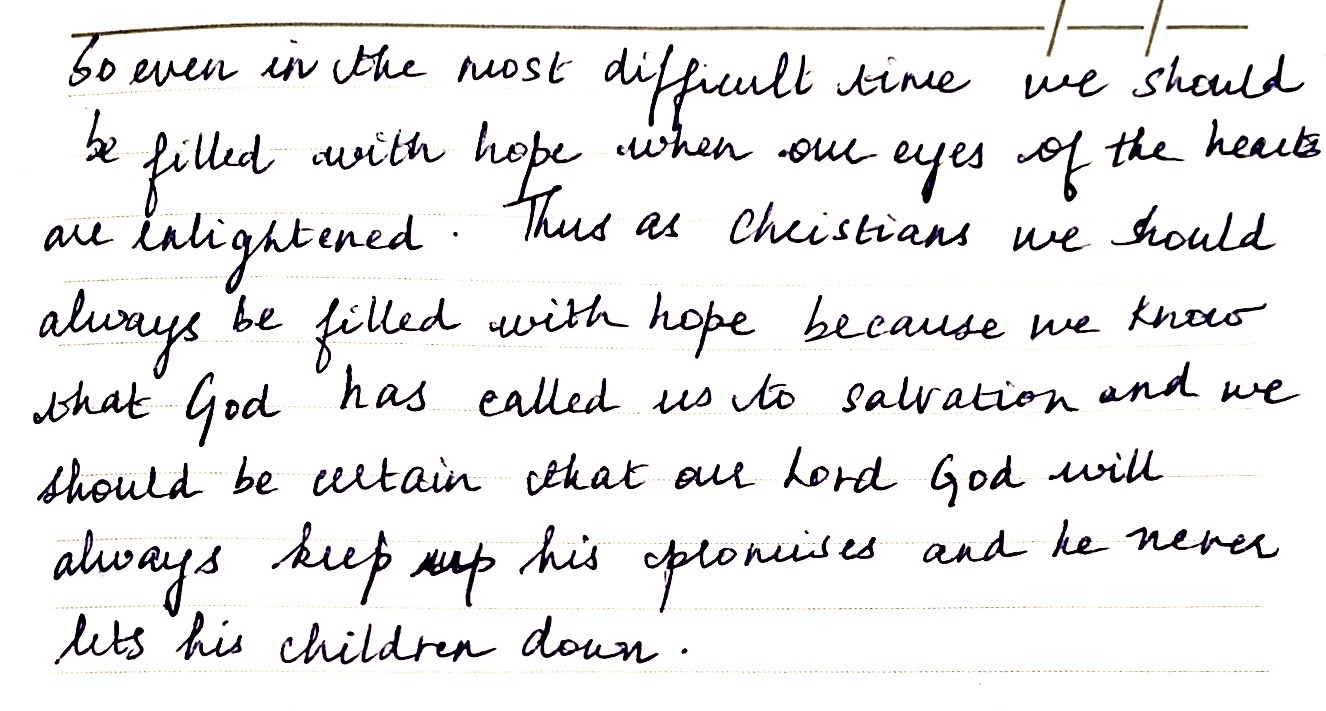 So even in the most difficult time we should
be filled with hope when our eyes of the hearts
are enlightened. Thus as Christians we should
always be filled with hope because we know
that God has called us to salvation and we
should be certain that our Lord God will
always keep up his promises and he never
lets his children down.